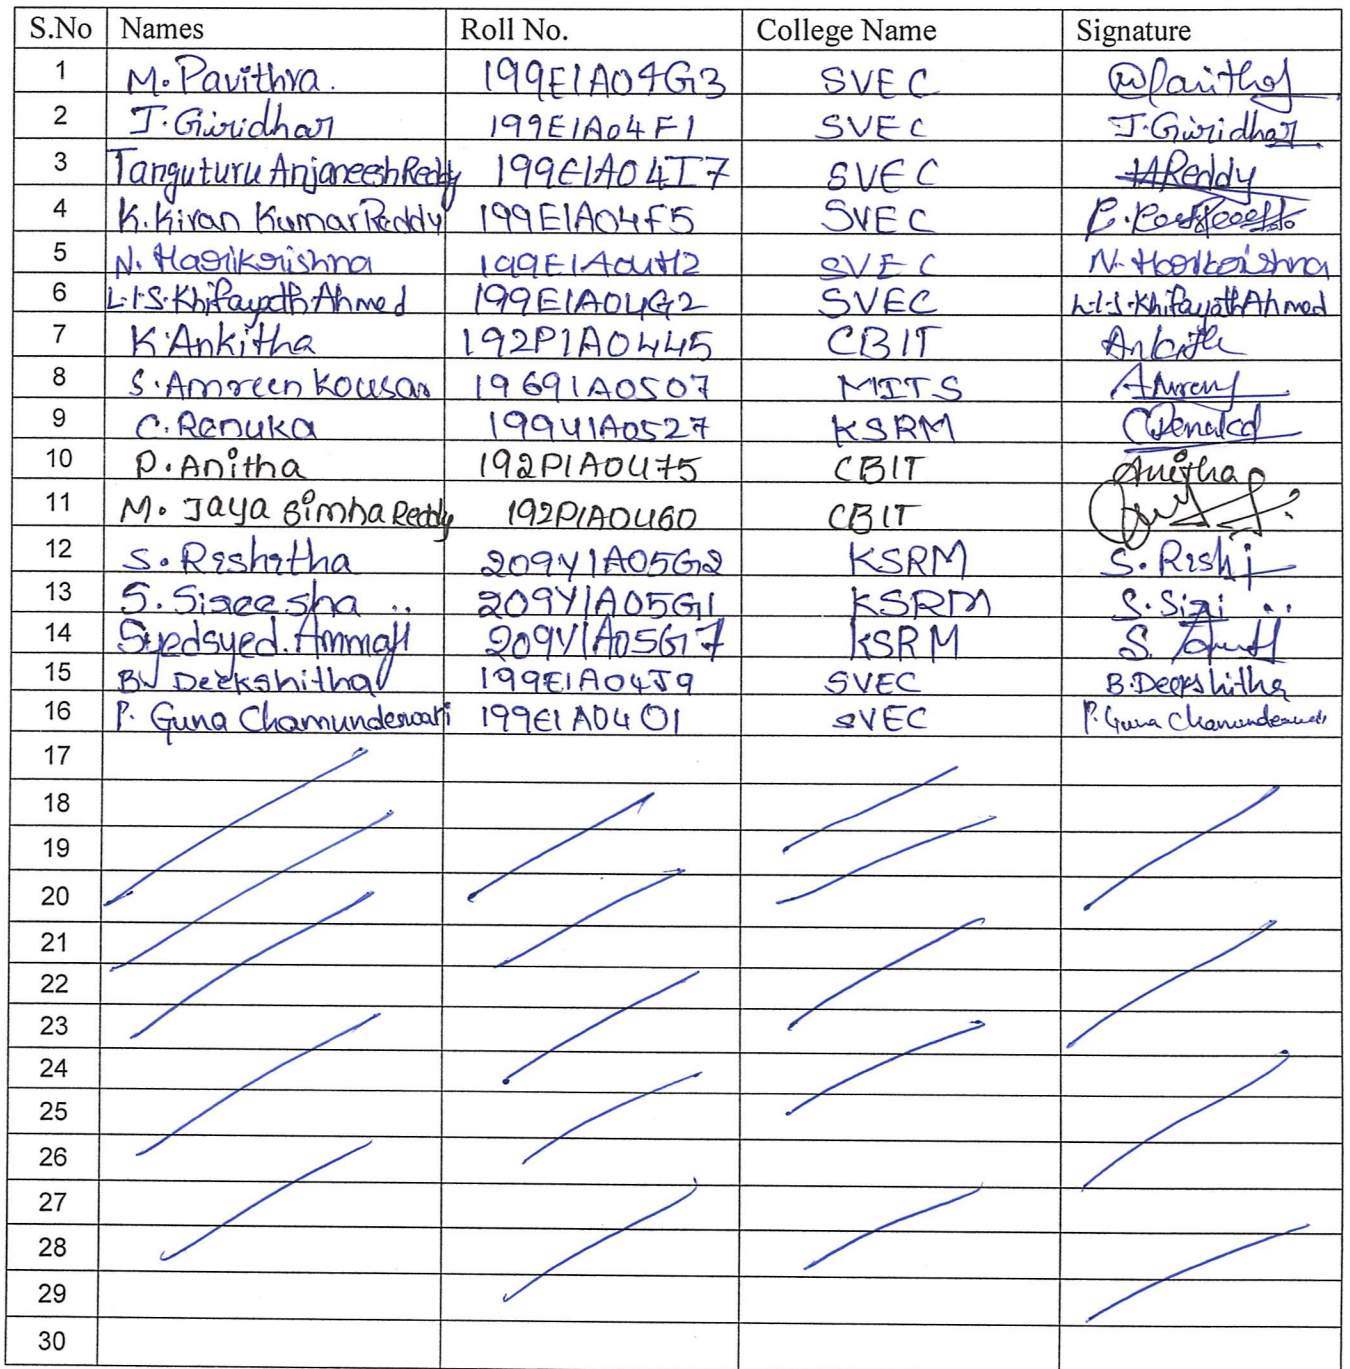 S.No Names Roll No. College Name Signature
1 M. Pavithra. 199E1A04G3 SVEC
2 J. Giridhar 199E1A04F1 SVEC J. Giridhar
3 Tanguturu Anjaneesh Reddy 199E1A04I7 SVEC Reddy
4 K. Kiran Kumar Reddy 199E1A04F5 SVEC
5 N. Harikrishna 199E1A04H2 SVEC N. Harikrishna
6 L.I.S. Khifayath Ahmed 199E1A04G2 SVEC L.I.S. Khifayath Ahmed
7 K. Ankitha 192P1A0445 CBIT
8 S. Amreen Kousar 19691A0507 MITS
9 C. Renuka 199Y1A0527 KSRM
10 P. Anitha 192P1A0475 CBIT Anitha
11 M. Jaya Simha Reddy 192P1A0460 CBIT
12 S. Rishitha 209Y1A05G2 KSRM S. Rishi
13 S. Sireesha .. 209Y1A05G1 KSRM S. Siri ..
14 Syedsyed. Ammaji 209Y1A05G7 KSRM S.
15 Deekshitha 199E1A04J9 SVEC B. Deekshitha
16 P. Guna Chamundeswari 199E1A0401 SVEC P. Guna
17
18
19
20
21
22
23
24
25
26
27
28
29
30